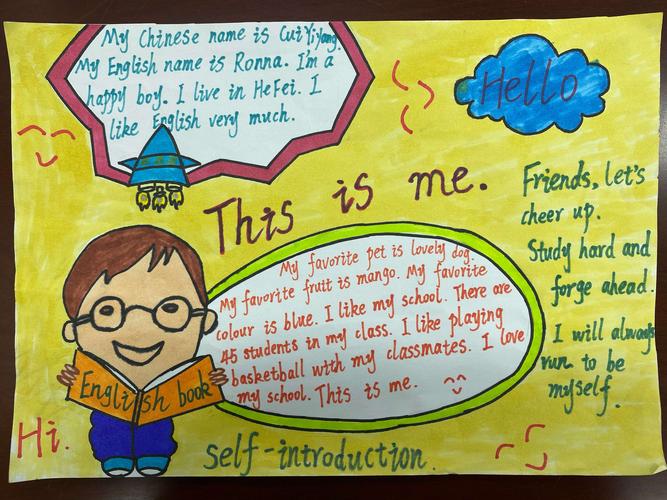 My Chinese name is Cui Yiyang.
My English name is Ronna. I'm a
happy boy. I live in HeFei. I
like English very much.
Hello
This is me.
Friends, let's
cheer up.
Study hard and
forge ahead.
I will always
run to be
myself.
My favorite pet is lovely dog.
My favorite fruit is mango. My favorite
colour is blue. I like my school. There are
45 students in my class. I like playing
basketball with my classmates. I love
my school. This is me.
English book
Hi.
self-introduction.